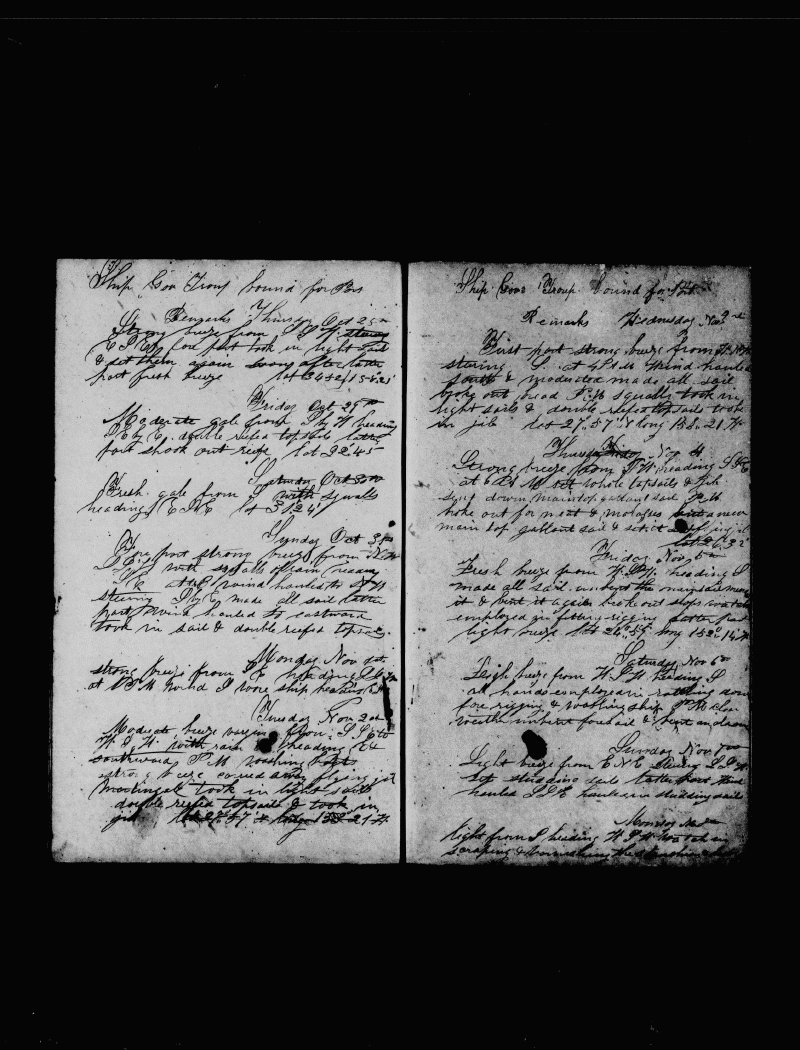 Ship Gov Troup bound for
Remarks Thursday Oct 28th
Strong breeze from
fore part took in light sails
& set them again soon after latter
part fresh breeze lat 34=42
Friday Oct 29th
Moderate gale from S by W heading
E by S. double reefed topsails latter
part shook out reefs lat 32"45
Saturday Oct 30th
Fresh gale from S with squalls
heading ESE lat 31"24'
Sunday Oct 31st
Fore part strong breeze from
with squalls of rain
wind hauled to
steering S by E made all sail latter
part wind hauled to eastward
took in sail & double reefed topsails
Monday Nov 1st
strong breeze from E heading
at PM wind S wore ship heading
Tuesday Nov 2nd
Moderate breeze varying from
with rain heading
southward PM washing
strong breeze carried away flying jib
martingale took in light sails
double reefed topsails & took in
jib lat 27"57 long 158-21 W
Ship Gov Troup bound for
Remarks Wednesday Nov 3rd
First part strong breeze from
steering S. at 4 PM wind hauled
south & moderated made all sail
broke out bread PM squally took in
light sails & double reefed topsails took
in jib lat 27.57 long 158.21 W
Thursday Nov 4
Strong breeze from SW heading SSE
at 6 AM set whole topsails & jib
send down maintopgallant sail PM
broke out for meat & molasses bent a new
main top gallant sail & set it flying jib
lat 26"32'
Friday Nov 5th
Fresh breeze from heading S
made all sail unbent the mainsail
it & bent it again broke out slops watch
employed in fitting rigging latter part
light breeze lat 24"59 long 152"14 W
Saturday Nov 6th
Light breeze from WSW heading S
all hands employed in rattling down
fore rigging & washing ship PM clear
weather unbent foresail & bent another
Sunday Nov 7th
Light breeze from ENE steering
set studding sails latter part wind
hauled SSW hauled in studding sail
Monday Nov 8th
light from S heading WSW watch
scraping & varnishing the